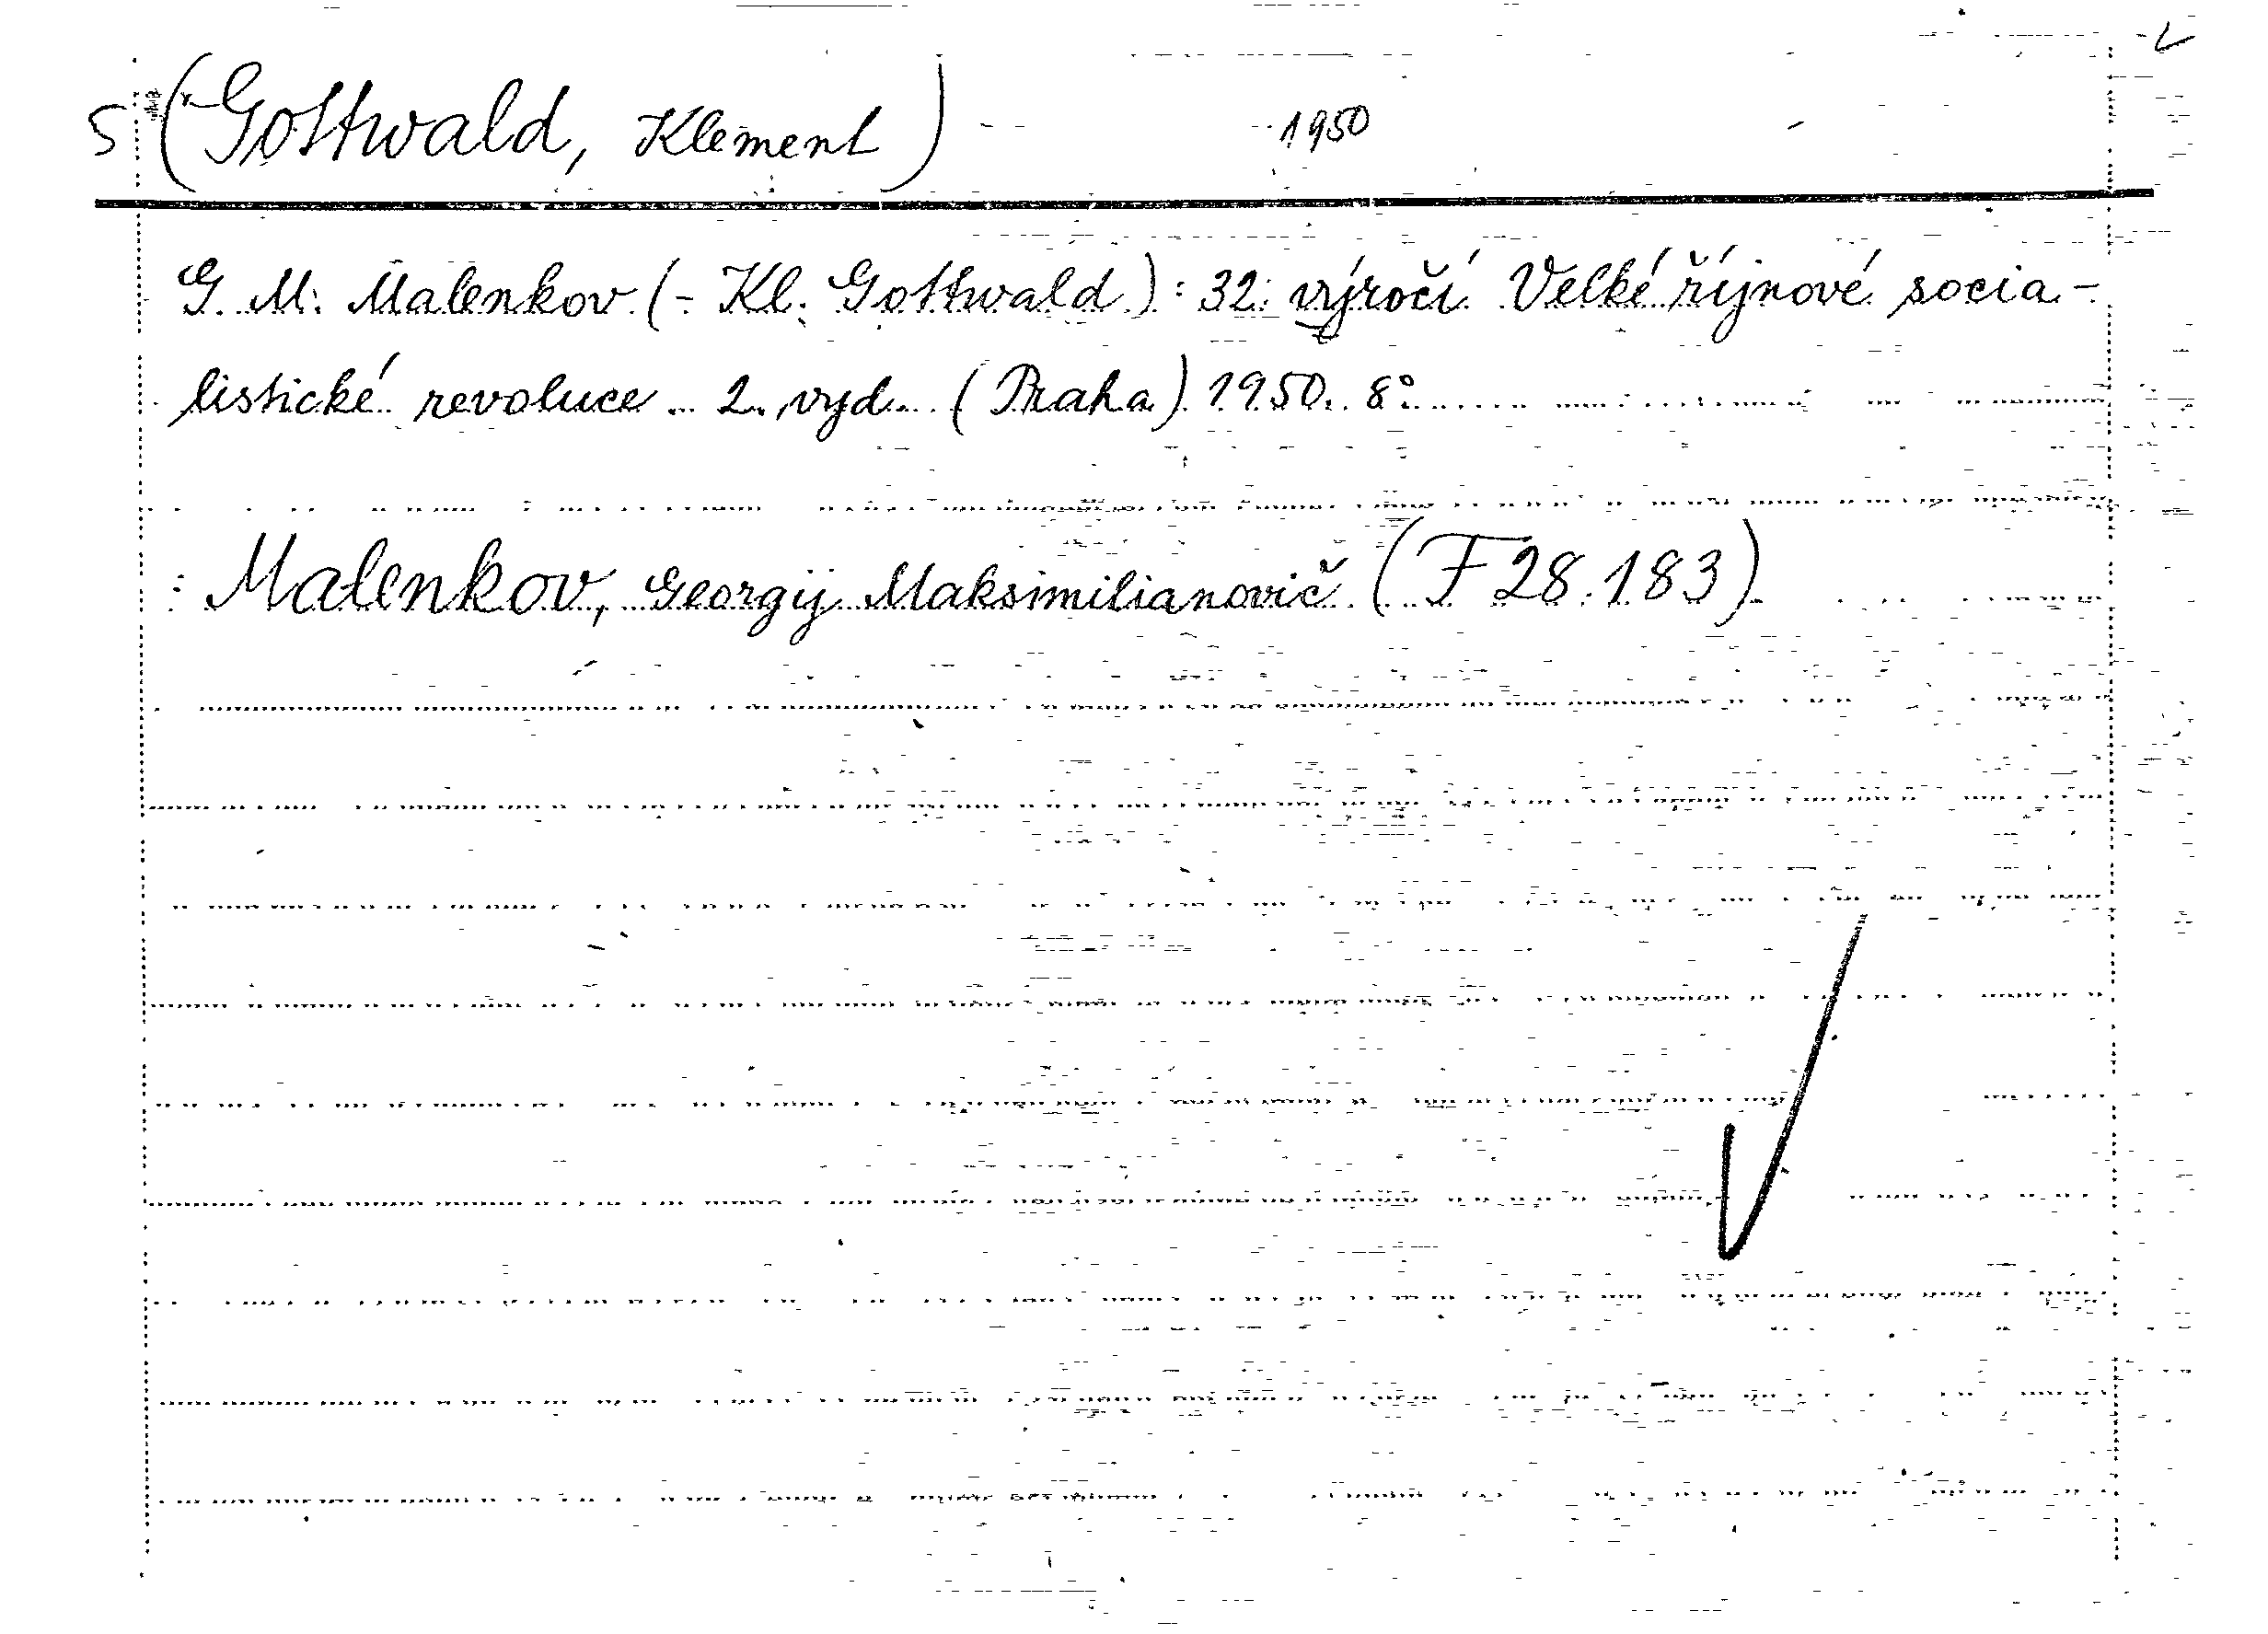 S (Gottwald, Klement) 1950
G. M. Malenkov (- Kl. Gottwald): 32. výročí Velké říjnové socia-
listické revoluce. 2. vyd. (Praha) 1950. 8°
: Malenkov, Georgij Maksimilianovič (F 28.183)